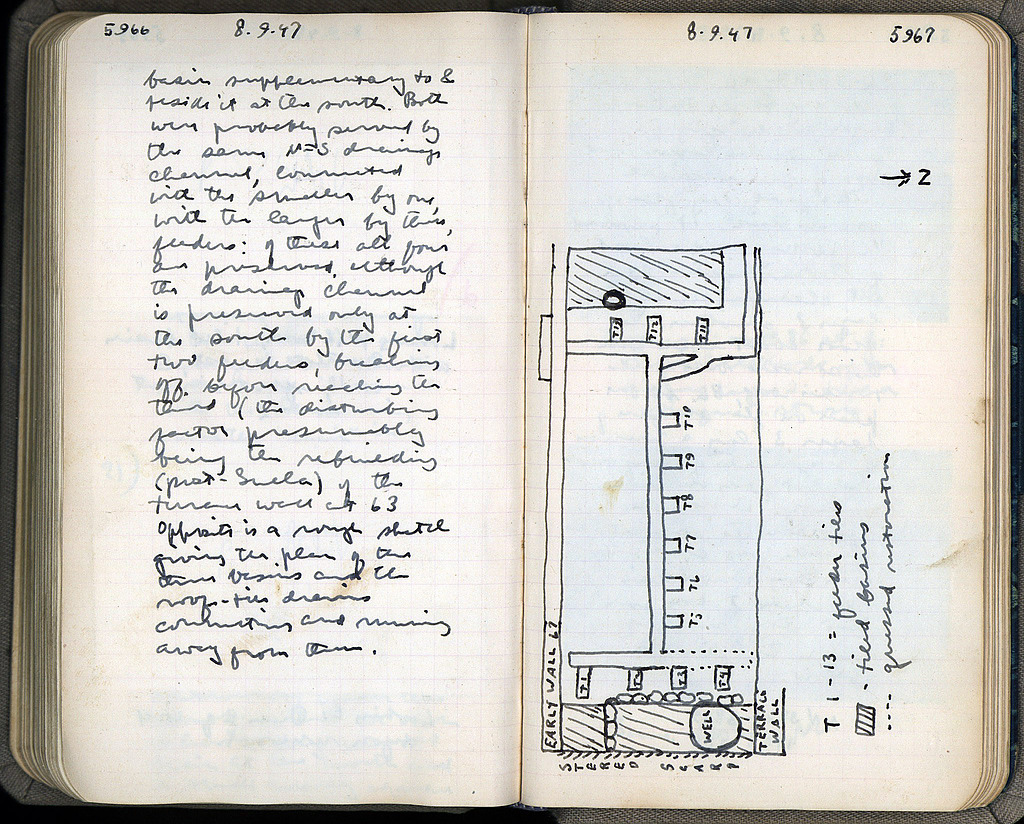 5966
8.9.47
basin supplementary to &
beside it at the south. Both
were probably served by
the same N-S drainage
channel, connected
with the smaller by one,
with the larger by three,
feeders: of these all four
are preserved, although
the drainage channel
is preserved only at
the south by the first
two feeders, breaking
off before reaching the
third (the disturbing
factor presumably
being the rebuilding
(post-Sulla) of the
terrace wall at 63
Opposite is a rough sketch
giving the plan of the
three basins and the
roof-tile drains
connecting and running
away from them.
8.9.47
5967
→ Z
T13
T12
T11
T10
T9
T8
T7
T6
T5
T1
T2
T3
T4
EARLY WALL 67
WELL
TERRACE
WALL
STEREO SCARP
T 1-13 = feeder tiles
- tiled basins
---- guessed restoration